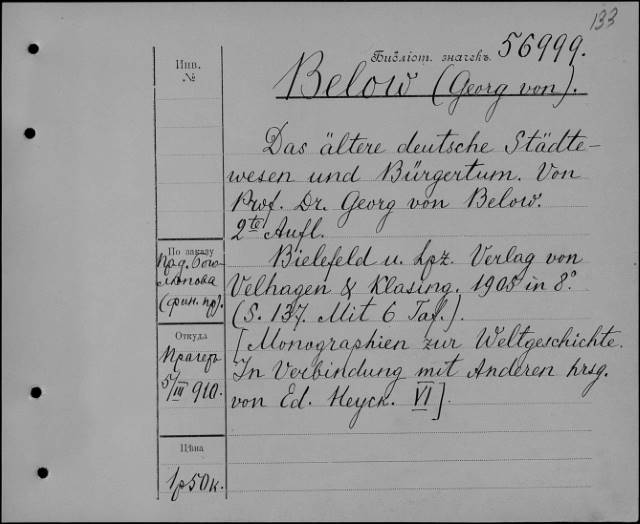 133
Библіот. значекъ. 56999.
Below (Georg von).
Инв.
№
Das ältere deutsche Städte-
wesen und Bürgertum. Von
Prof. Dr. Georg von Below.
2te Aufl.
Bielefeld u. Lpz. Verlag von
Velhagen & Klasing. 1905 in 8°.
(S. 137. Mit 6 Taf.).
[Monographien zur Weltgeschichte.
In Verbindung mit Anderen hrsg.
von Ed. Heyck. VI].
По заказу
(фин. пр).
Откуда
Прагеръ
5/III 910.
Цѣна
1р50к.